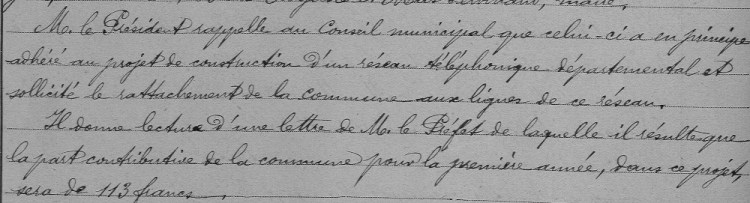 maire,
M. le Président rappelle au Conseil municipal que celui-ci a en principe
adhéré au projet de construction d'un réseau téléphonique départemental et
sollicité le rattachement de la commune aux lignes de ce réseau.
Il donne lecture d'une lettre de M. le Préfet de laquelle il résulte que
la part contributive de la commune pour la première année, dans ce projet,
sera de 113 francs.